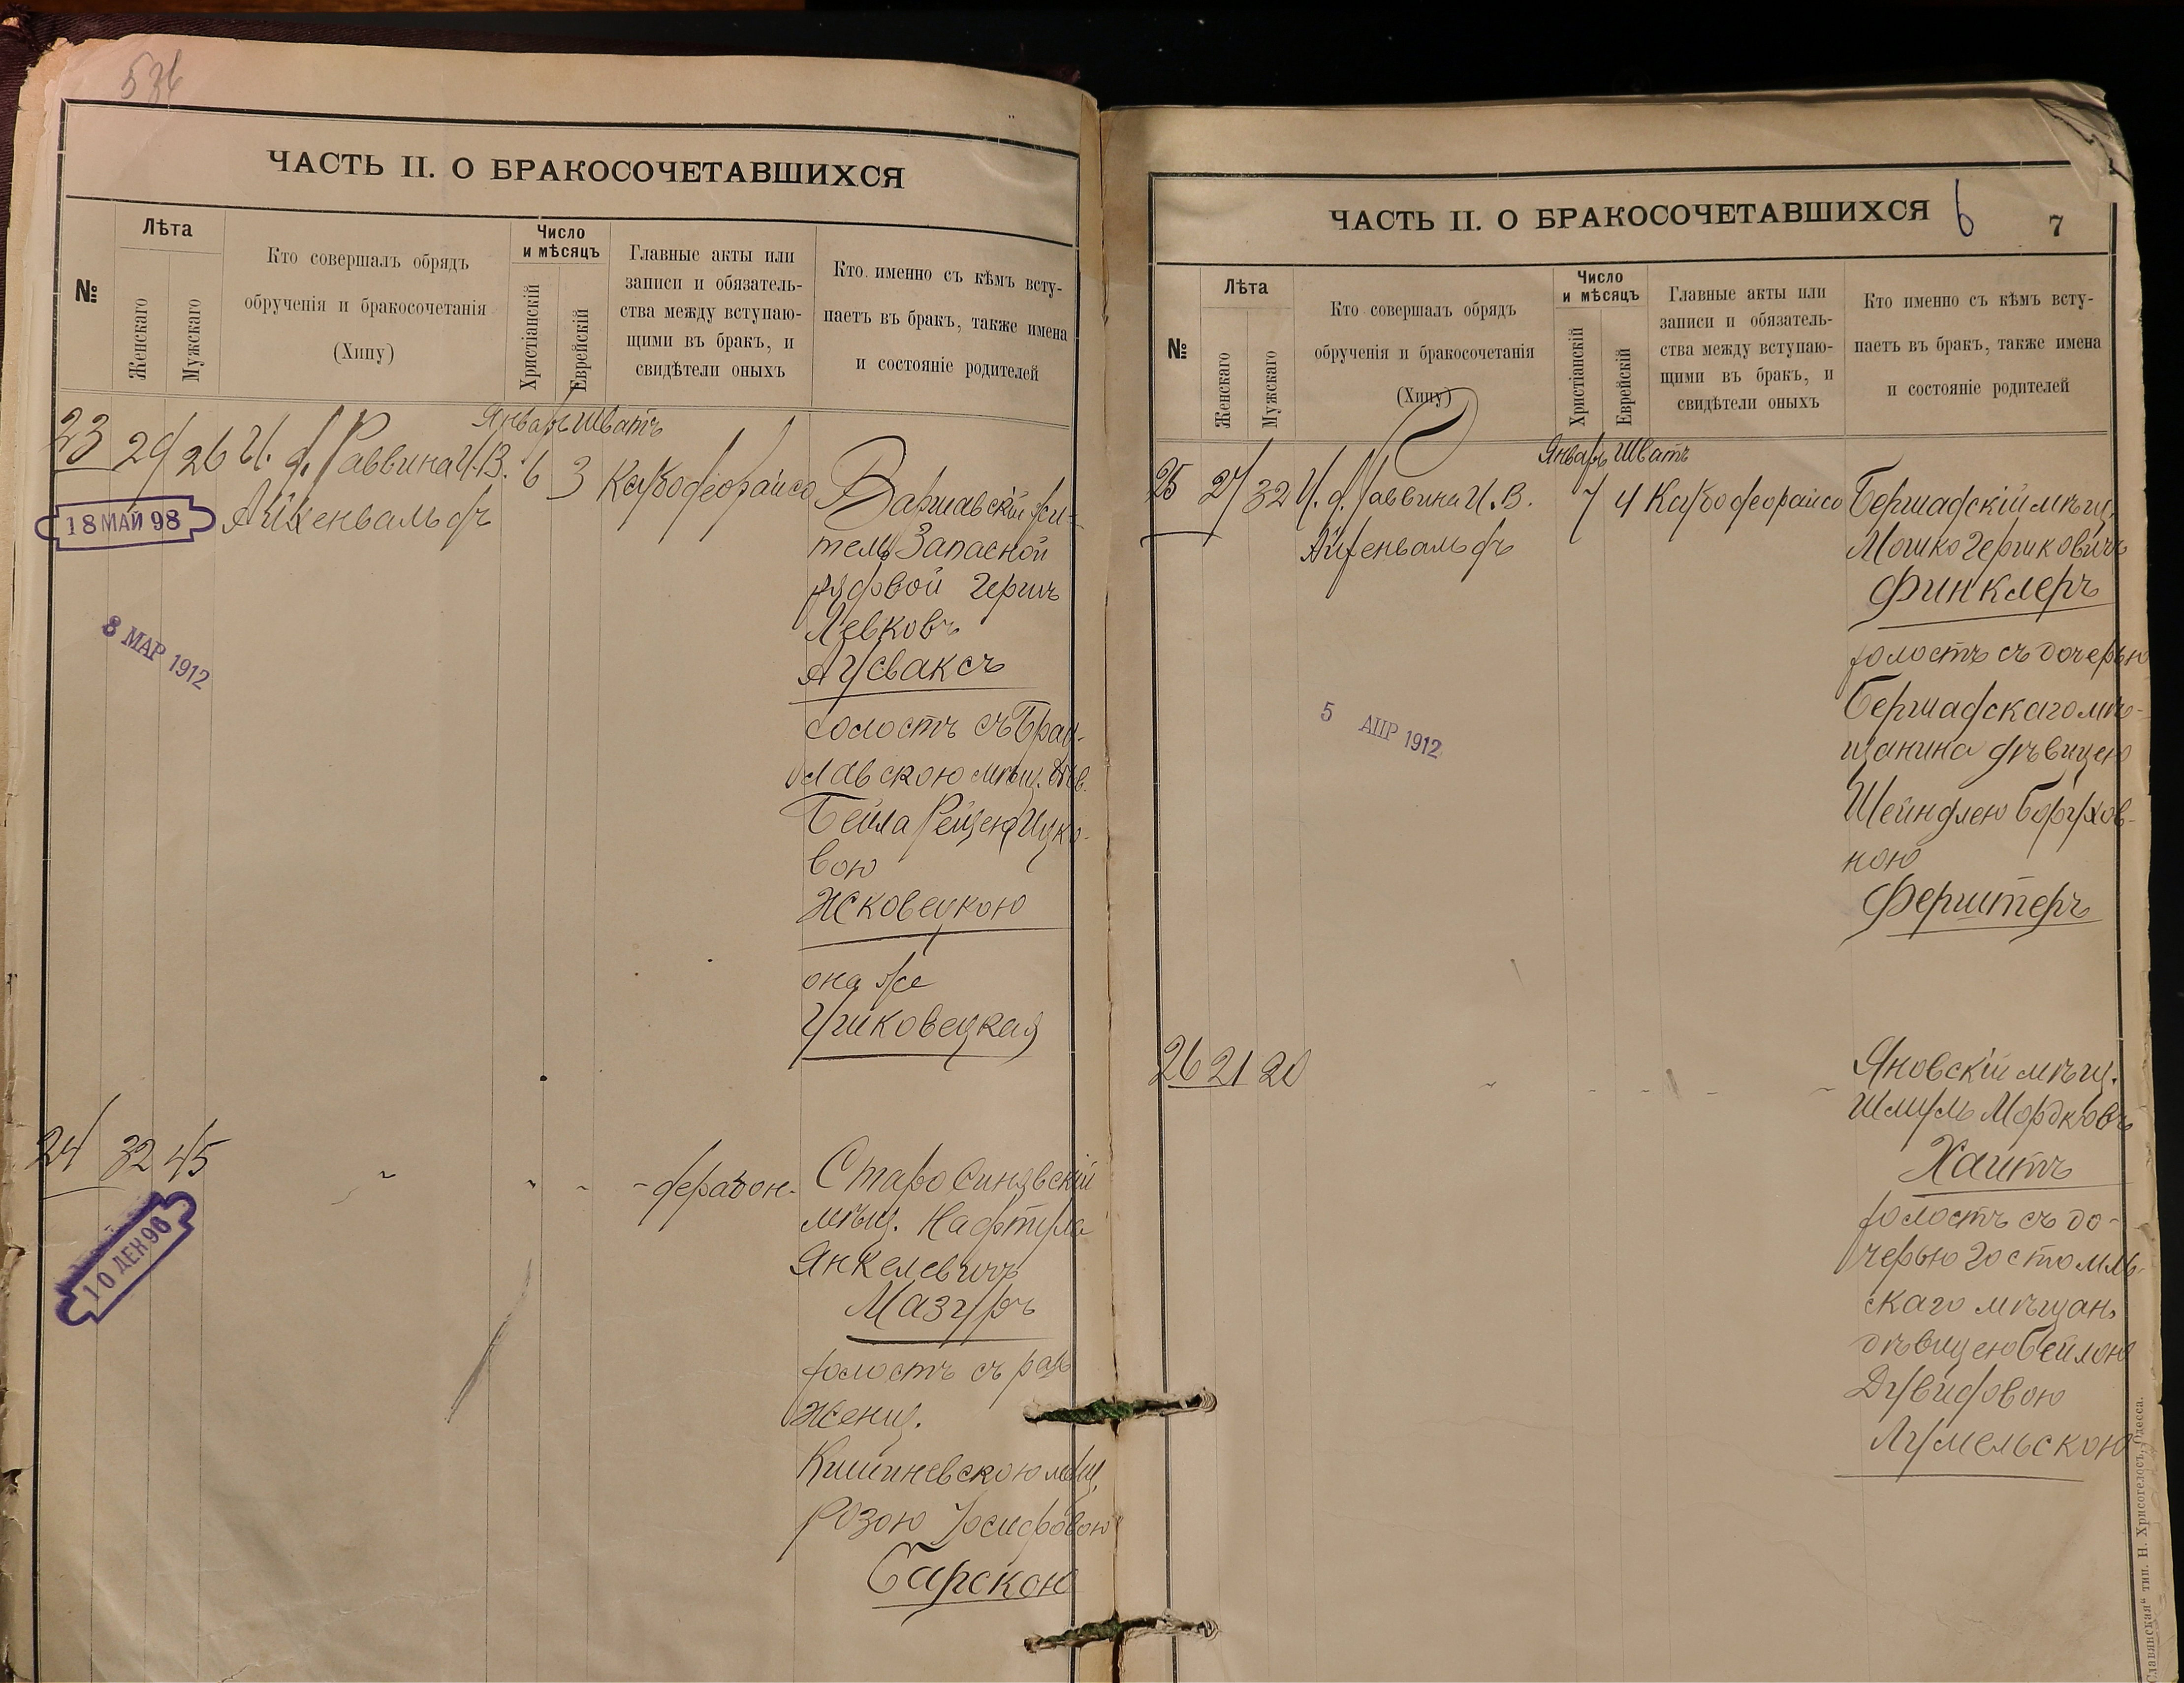 ЧАСТЬ II. О БРАКОСОЧЕТАВШИХСЯ
№
Лѣта
Женскаго
Мужскаго
Кто совершалъ обрядъ
обрученія и бракосочетанія
(Хипу)
Число
и мѣсяцъ
Христіанскій
Еврейскій
Главные акты или
записи и обязатель-
ства между вступаю-
щими въ бракъ, и
свидѣтели оныхъ
Кто именно съ кѣмъ всту-
паетъ въ бракъ, также имена
и состояніе родителей
Январь Шватъ
23 29 26 И. д. Раввина И. В. 6 3
Айзенвальдъ
18 МАЙ 98
8 МАР 1912
Варшавскій жи-
тель Запасной
рядовой Гершъ
Левковъ
Аусваксъ
холостъ съ Брац-
лавскою мѣщ. дѣв.
Бейла Рейзею Ицко-
вою
Жсковецкою
она же
24 32 45
10 ДЕН 98
Старосинявскій
мѣщ. Нафтула
Янкелевичъ
Мазуръ
холостъ съ раз
жениц.
Кишиневскою мѣщ.
Розою Іосифовою
Барскою
ЧАСТЬ II. О БРАКОСОЧЕТАВШИХСЯ 6 7
№
Лѣта
Женскаго
Мужскаго
Кто совершалъ обрядъ
обрученія и бракосочетанія
(Хипу)
Число
и мѣсяцъ
Христіанскій
Еврейскій
Главные акты или
записи и обязатель-
ства между вступаю-
щими въ бракъ, и
свидѣтели оныхъ
Кто именно съ кѣмъ всту-
паетъ въ бракъ, также имена
и состояніе родителей
Январь Шватъ
25 27 32 И. д. Раввина И. В. 7 4
Айзенвальдъ
5 АПР 1912
Бершадскій мѣщ.
Мошко Гершковичъ
Финклеръ
холостъ съ дочерью
Бершадскаго мѣ-
щанина дѣвицею
Шейндлею Борухов-
ною
Ферштеръ
26 21 20
Яновскій мѣщ.
Шмуль Мордковъ
Хаитъ
холостъ съ до-
черью Гостомль-
скаго мѣщан.
дѣвицею Бейлою
Дувидовою
Лумельскою
Славянская" тип. Н. Хрисогелосъ, Одесса.